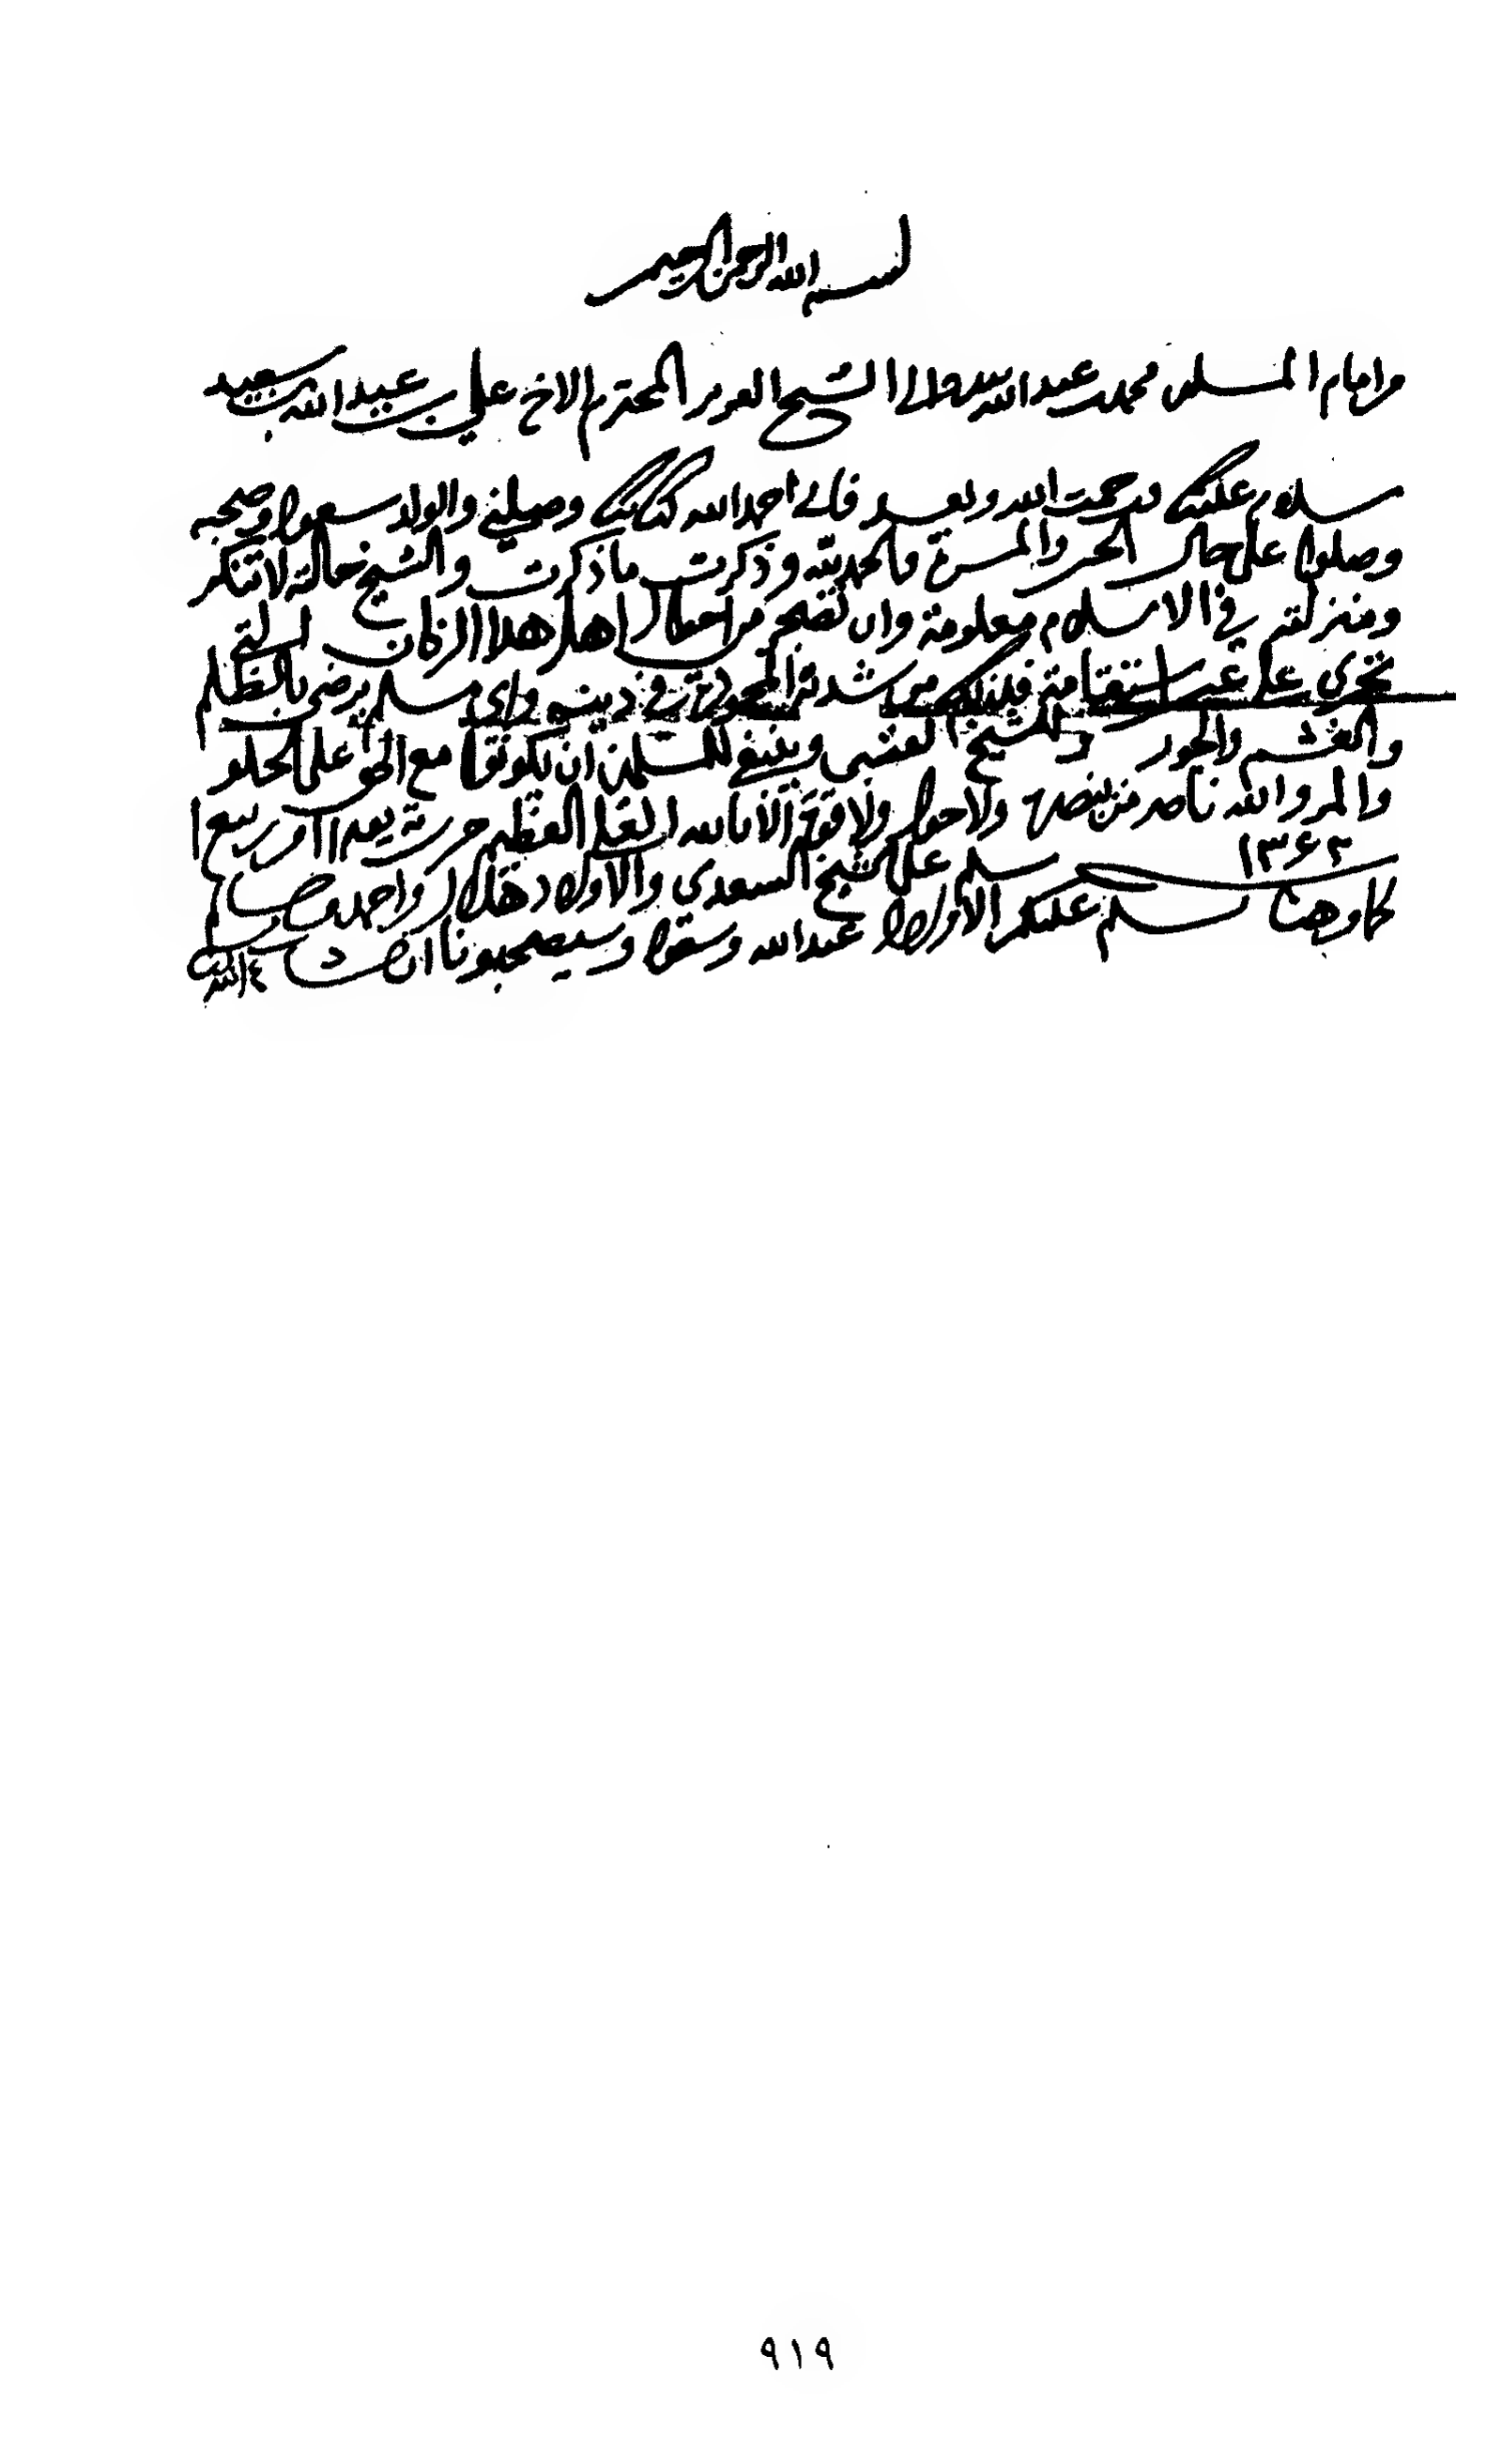 بسم الله الرحمن الرحيم
من امام المسلمين محمد بن عبد الله الى الشيخ العزيز المحترم الاخ علي بن عبد الله بن سعيد
سلام عليك ورحمت الله وبعد فاني احمد الله كتابك وصلني والولد سعود وصحبه
وصلوا على حال الخير والمسرة فالحمد لله وذكرت ما ذكرت والشيخ حاله لا تنكر
ومنزلته في الاسلام معلومة وان تضجر من اعمال اهل هذا الزمان التي
تجري على غير استقامة فلذلك من شدته المحمودة في دينه واي مسلم يرضى بالظلم
والغشم والجور وللشيخ العتبى وينبغي للمسلمين ان يكونوا مع الحق على الحلو
والمر والله ناصر من ينصره ولا حول ولا قوة الا بالله العلي العظيم حرر ته يوم ربيع
١٣٦٢ سلم على الشيخ السعدي والاولاد هلال واحمد وسالم
كما وهنا يسلم عليكم الاولاد عبد الله وسيصحبونا ان شاء الله
٩١٩